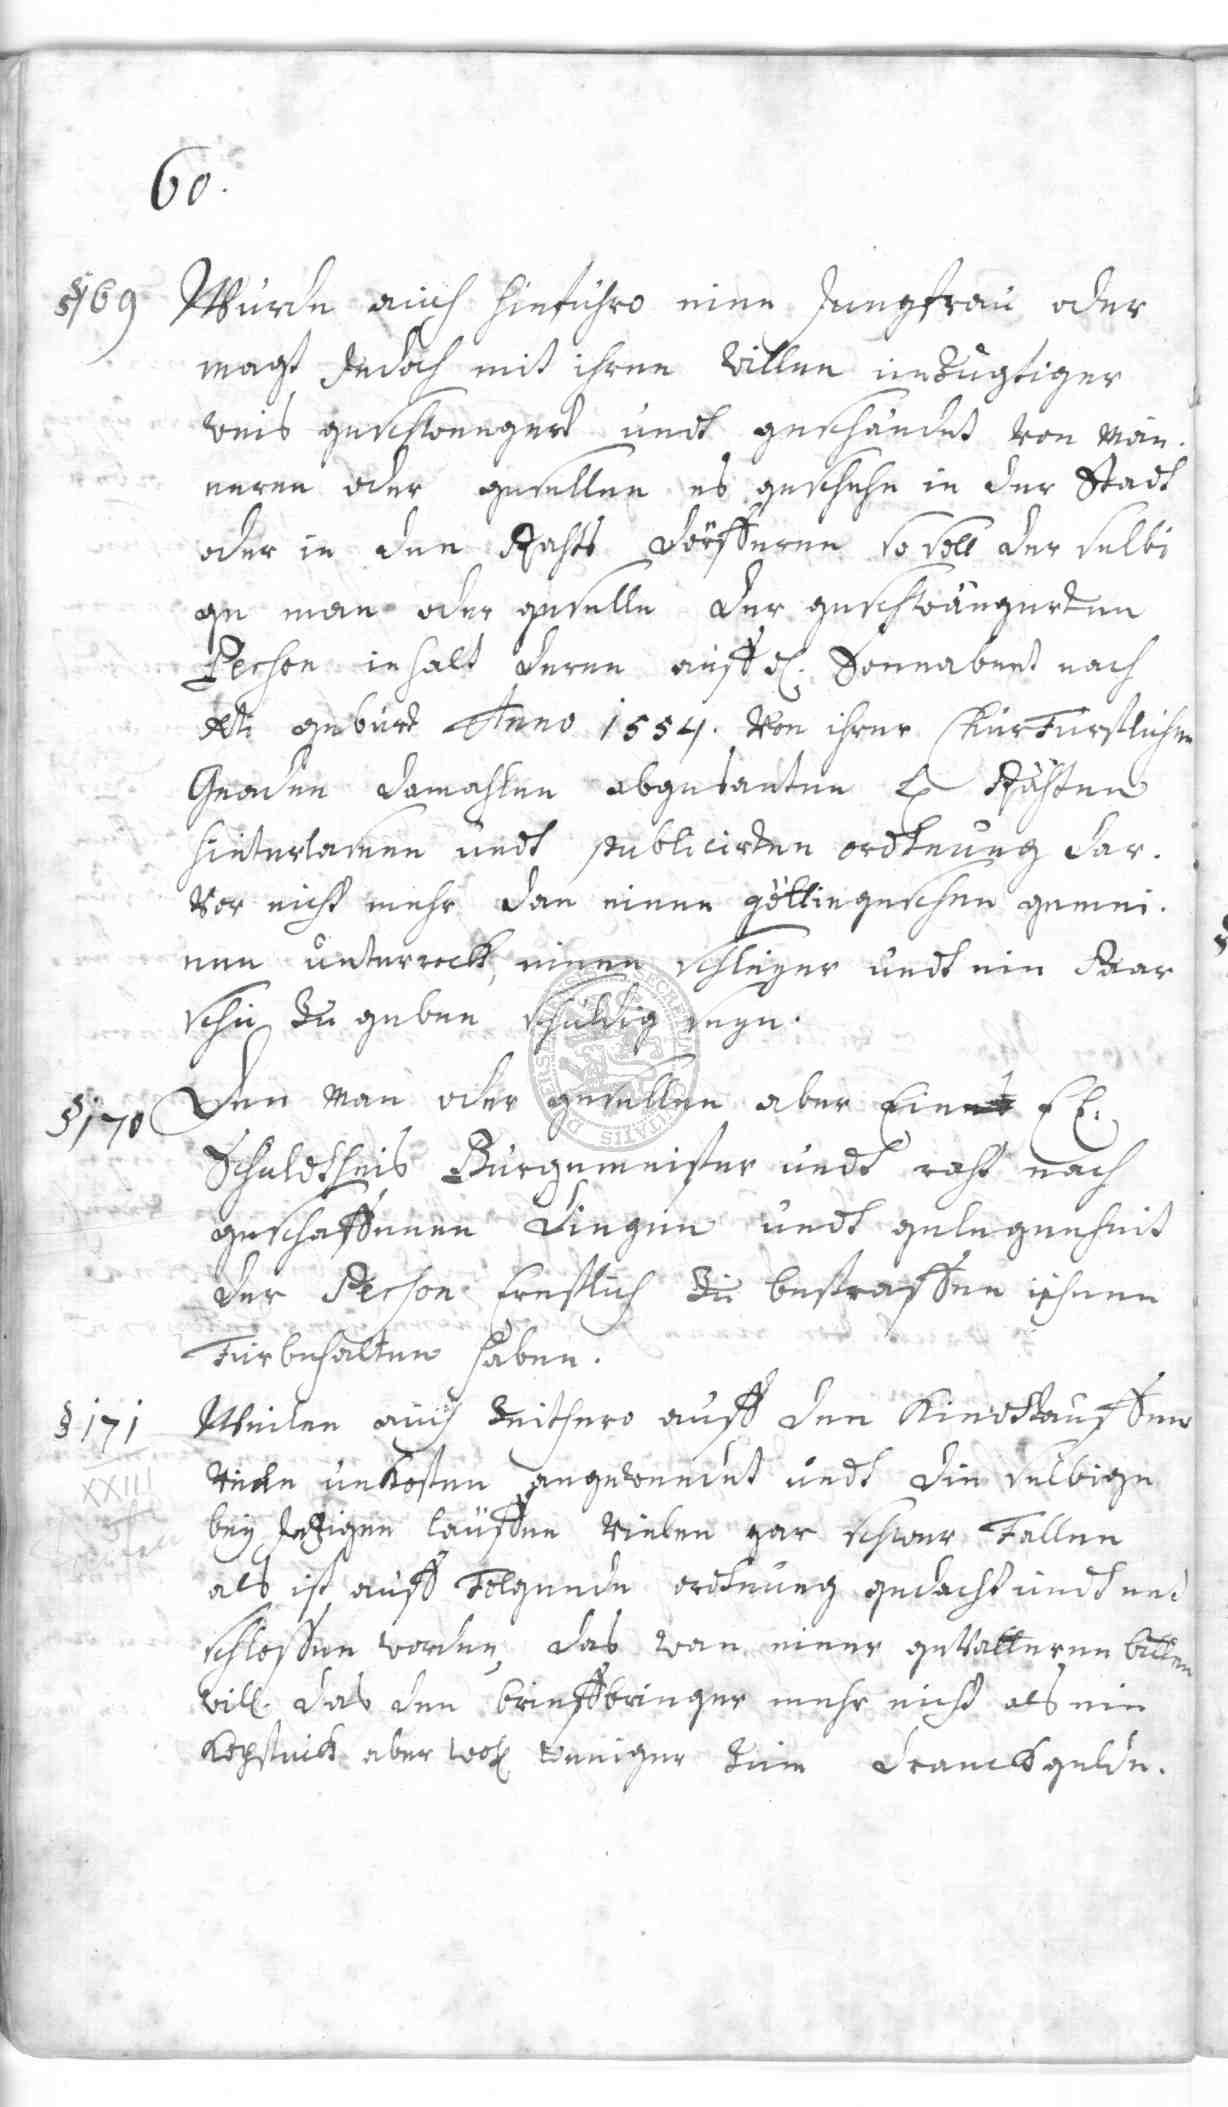 60.
§169 Würde auch hinfuhro eine Jungfrau oder
magt Jedoch mit ihren willen unzügtiger
weis geschwengert undt geschändet von män-
neren oder gesellen es geschehe in der Stadt
oder in den Rahts dörfferen so soll der selbi
ge man oder geselle der geschwängerten
Person inhalt deren auff Sonnabent nach
geburt Anno 1554. von ihrer ChurFürstlichen
Gnaden damahlen abgesanten Rähten
hinterlasenen undt publicirten ordtnung dar-
vor nicht mehr dan einen göttingeschen gemei-
nen unterrock, einen schleyer undt ein Paar
schu zu geben schuldig seyn.
§170 Den Man oder gesellen aber Ein EE.
Schuldtheis Bürgemeister undt raht nach
geschaffenen dingen undt gelegenheit
der Person Ernstlich zu bestraffen ihnen
Fürbehalten haben.
§171 Weilen auch zeithero auff den Kindttauffen
viele unkosten angewendet undt die selbige
XXIII
bey Jetzigen läufften vielen gar schwer Fallen
als ist auff Folgende ordtnung gedacht undt ent
schlossen worden, das wan einer geVatteren bitten
will. das den brieffbringer mehr nicht als ein
Kopstuck aber woll weniger zum dranckgelde.